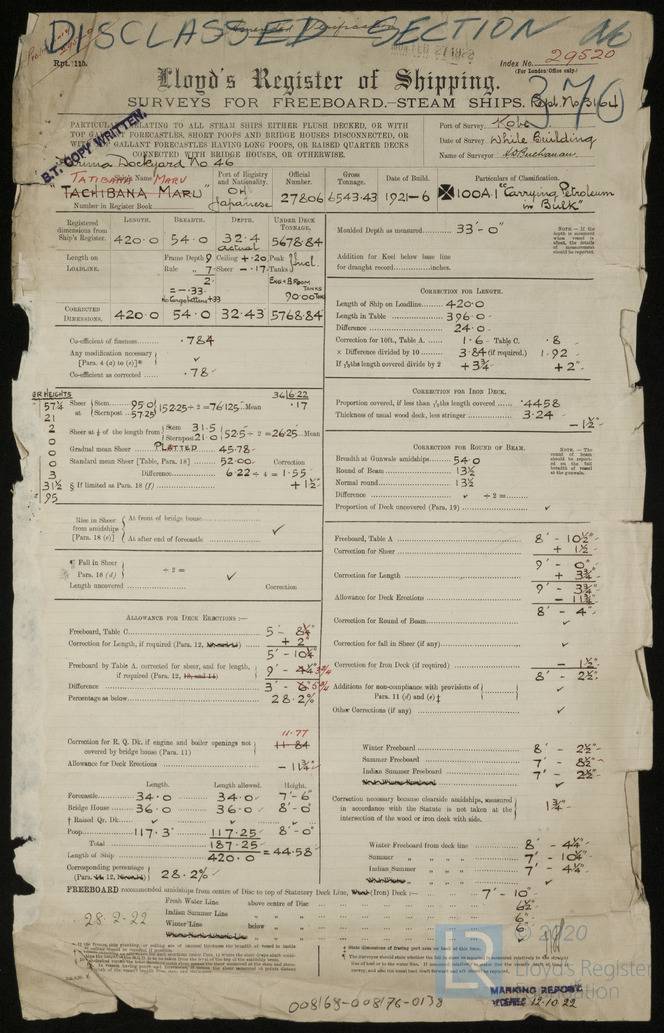 DISCLASSED SECTION
Rpt. 11b.
Index No. 29520
(For London Office only.)
Lloyd's Register of Shipping.
376
SURVEYS FOR FREEBOARD.—STEAM SHIPS. Rept. No 3104
B.T. COPY WRITTEN.
PARTICULARS RELATING TO ALL STEAM SHIPS EITHER FLUSH DECKED, OR WITH
TOP GALLANT FORECASTLES, SHORT POOPS AND BRIDGE HOUSES DISCONNECTED, OR
WITH TOP GALLANT FORECASTLES HAVING LONG POOPS, OR RAISED QUARTER DECKS
CONNECTED WITH BRIDGE HOUSES, OR OTHERWISE.
Port of Survey Kobe
Date of Survey While Building
Name of Surveyor
Dockyard No 46
Ship's Name TATIBANA MARU
"TACHIBANA MARU"
Number in Register Book
Port of Registry and Nationality. Japanese
Official Number 27806
Gross Tonnage. 6543.43
Date of Build. 1921-6
Particulars of Classification. 100A1 "Carrying Petroleum in Bulk"
Registered dimensions from Ship's Register.
LENGTH. 420.0
BREADTH. 54.0
DEPTH. 32.4 actual
UNDER DECK TONNAGE. 5678.84
Length on LOADLINE.
Frame Depth 9 Ceiling +.20 Peak Incl.
Rule 7 Sheer -.17 Tanks
2
= -.33
No Cargo battens +33
ENG & B ROOM TANKS
90.00 Tons
CORRECTED DIMENSIONS. 420.0 54.0 32.43 5768.84
Co-efficient of fineness .784
Any modification necessary [Para. 4 (a) to (e)]* ✓
Co-efficient as corrected .78
ER HEIGHTS
57¼
21
2
0
0
3
31½
95
36)6.22
.17
Sheer at Stem 95.0 Sternpost 57.25 152.25 ÷ 2 = 76.125 Mean
Sheer at ⅛ of the length from Stem 31.5 Sternpost 21.0 52.5 ÷ 2 = 26.25 Mean
Gradual mean Sheer PLATTED 45.78
Standard mean Sheer [Table, Para. 18] 52.00 Correction
Difference 6.22 ÷ 4 = 1.55
§ If limited as Para. 18 (f) + 1½"
Rise in Sheer from amidships [Para. 18 (e)]
At front of bridge house
At after end of forecastle ✓
¶ Fall in Sheer Para. 18 (d) ÷ 2 = ✓
Length uncovered Correction
ALLOWANCE FOR DECK ERECTIONS :—
Freeboard, Table C. 5' - 8¼"
Correction for Length, if required (Para. 12, + 2"
5' - 10¼"
Freeboard by Table A. corrected for sheer, and for length, if required (Para. 12, 13, and 14) 9' - 4¼" 3¾
Difference 3' - 6" 5¾
Percentage as below 28.2%
11.77
Correction for R. Q. Dk. if engine and boiler openings not covered by bridge house (Para. 11) 11.84
Allowance for Deck Erections - 11¾"
Length. Length allowed. Height.
Forecastle 34.0 34.0 7'-6"
Bridge House 36.0 36.0 8'-0"
† Raised Qr. Dk. ✓ ✓ ✓
Poop 117.3" 117.25 8'-0"
Total 187.25
Length of Ship 420.0 = 44.58
Corresponding percentage (Para. 12, 28.2%
Moulded Depth as measured 33'-0"
NOTE.—If the depth is measured when vessel is afloat, the details of measurement should be reported.
Addition for Keel below base line
for draught record inches.
CORRECTION FOR LENGTH.
Length of Ship on Loadline 420.0
Length in Table 396.0
Difference 24.0
Correction for 10ft., Table A. 1.6 Table C. .8
× Difference divided by 10 3.84 (if required.) 1.92
If 6/10ths length covered divide by 2 + 3¾ + 2"
CORRECTION FOR IRON DECK.
Proportion covered, if less than 7/10ths length covered .4458
Thickness of usual wood deck, less stringer 3.24
- 1½"
CORRECTION FOR ROUND OF BEAM.
NOTE.—The round of beam should be reported on the full breadth of vessel at the gunwale.
Breadth at Gunwale amidships 54.0
Round of Beam 13½
Normal round 13½
Difference ✓ ÷ 2 =
Proportion of Deck uncovered (Para. 19) ✓
Freeboard, Table A 8' - 10½"
Correction for Sheer + 1½
9' - 0"
Correction for Length + 3¾
9' - 3¾
Allowance for Deck Erections - 11¾
8' - 4"
Correction for Round of Beam ✓
Correction for fall in Sheer (if any) ✓
Correction for Iron Deck (if required) - 1½"
8' - 2½"
Additions for non-compliance with provisions of Para. 11 (d) and (e)‡ ✓
Other Corrections (if any) ✓
Winter Freeboard 8' - 2½"
Summer Freeboard 7' - 8½"
Indian Summer Freeboard 7' - 2½"
Correction necessary because clearside amidships, measured in accordance with the Statute is not taken at the intersection of the wood or iron deck with side. 1¾"
Winter Freeboard from deck line 8' - 4¼"
Summer „ „ „ „ 7' - 10¼"
Indian Summer „ „ „ „ 7' - 4¼"
FREEBOARD recommended amidships from centre of Disc to top of Statutory Deck Line, (Iron) Deck :— 7' - 10"
Fresh Water Line above centre of Disc 6½"
Indian Summer Line „ „ 6"
Winter Line below „ „ 6"
28-2-22
© 2020
Lloyd's Register
Foundation
MARKING REPORT
12.10.22
008168-008176-0138